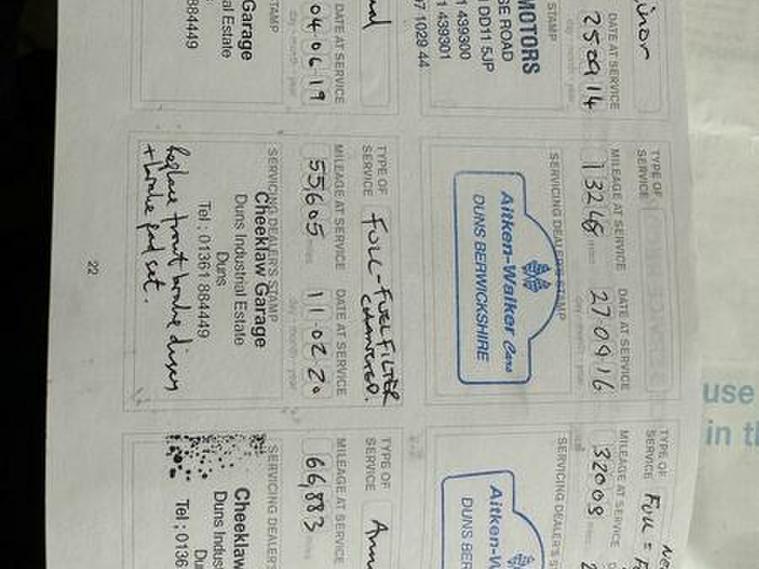 inor
DATE AT SERVICE
25 09 14
day month year
STAMP
MOTORS
SE ROAD
DD11 5JP
1 439300
1 439301
07 1029 44
TYPE OF
SERVICE
MILEAGE AT SERVICE
DATE AT SERVICE
13248 miles
27 09 16
day month year
SERVICING DEALER'S STAMP
Aitken-Walker Cars
DUNS BERWICKSHIRE
TYPE OF
SERVICE
FULL =
MILEAGE AT SERVICE
32009 miles
SERVICING DEALER'S S
Aitken-W
DUNS BER
DATE AT SERVICE
04 06 19
day month year
STAMP
Garage
ial Estate
884449
TYPE OF
SERVICE
FULL - FUEL FILTER
CHANGED.
MILEAGE AT SERVICE
DATE AT SERVICE
55,605 miles
11 02 20
day month year
SERVICING DEALER'S STAMP
Cheeklaw Garage
Duns Industrial Estate
Duns
Tel : 01361 884449
Replace front brake discs
+ brake pad set.
TYPE OF
SERVICE
Ann
MILEAGE AT SERVICE
66,883 miles
SERVICING DEALER
Cheeklaw
Duns Indus
Du
Tel : 0136
22
use
in th